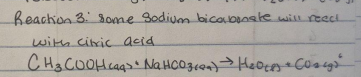 Reaction 3: Some Sodium bicarbonate will react
with citric acid
CH3COOH(aq) + NaHCO3(aq) → H2O(l) + CO2(g)